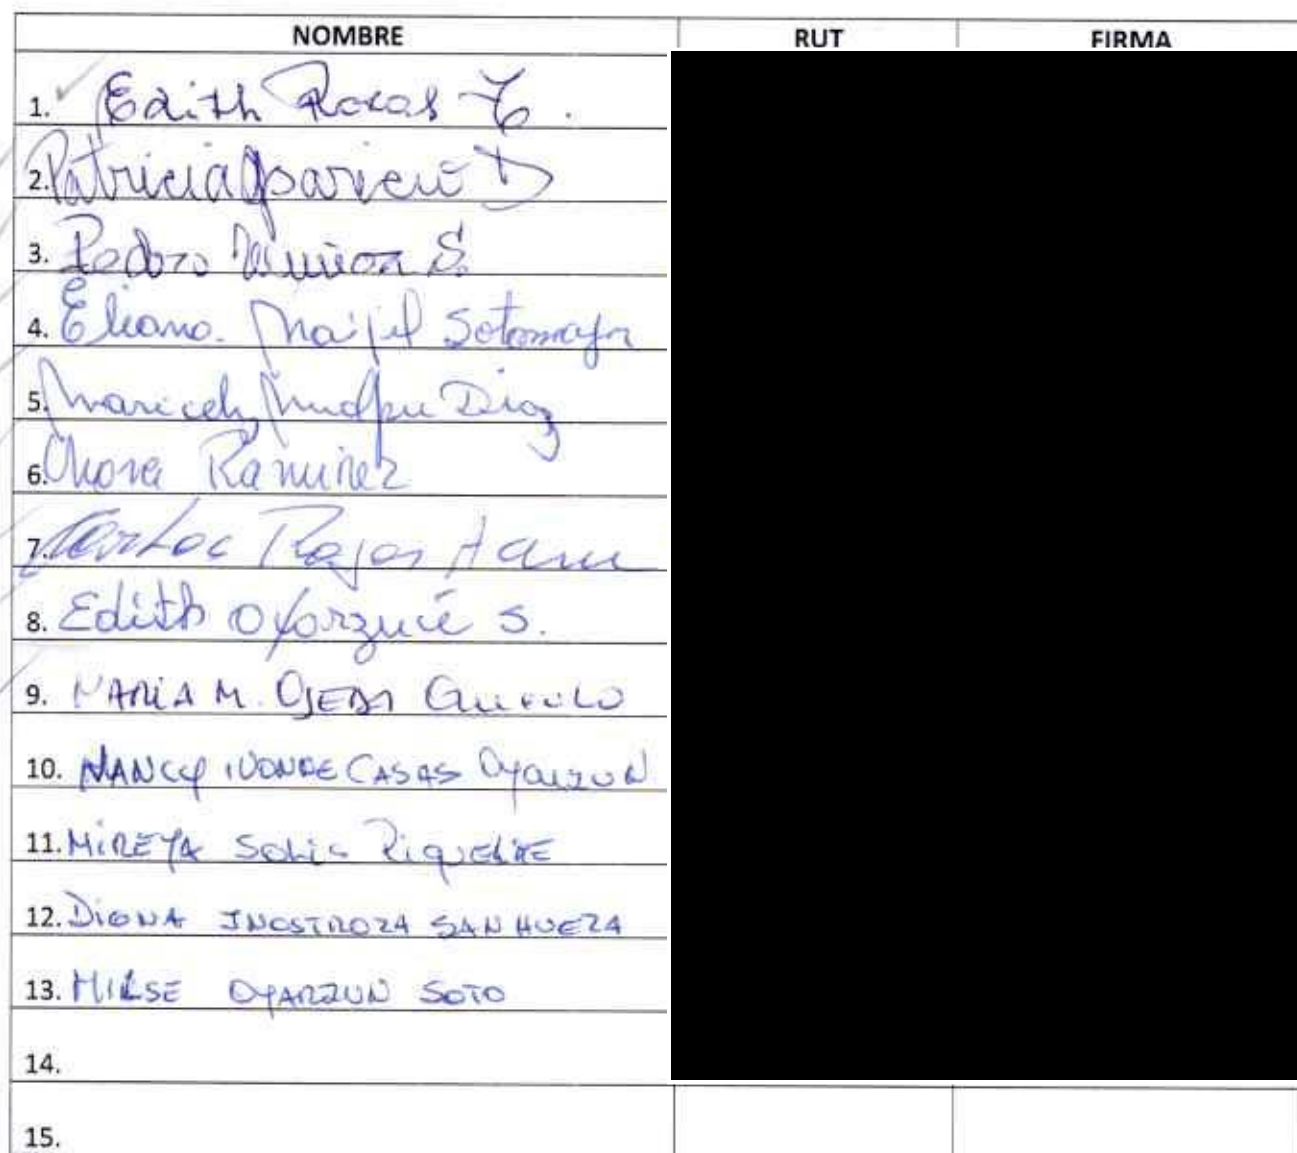 NOMBRE RUT FIRMA
1. Edith Rosas
2. Patricia Aparicio D
3. Pedro Muñoz S.
4. Eliana Maijil Sotomayor
5. Maricely Diaz
6. Ramirez
7. Carlos Rojas
8. Edith Oyarzún S.
9. MARIA M. OJEDA
10. NANCY IVONNE CASAS OYARZUN
11. MIREYA SOLIS RIQUELME
12. DIGNA INOSTROZA SANHUEZA
13. MILSE OYARZUN SOTO
14.
15.